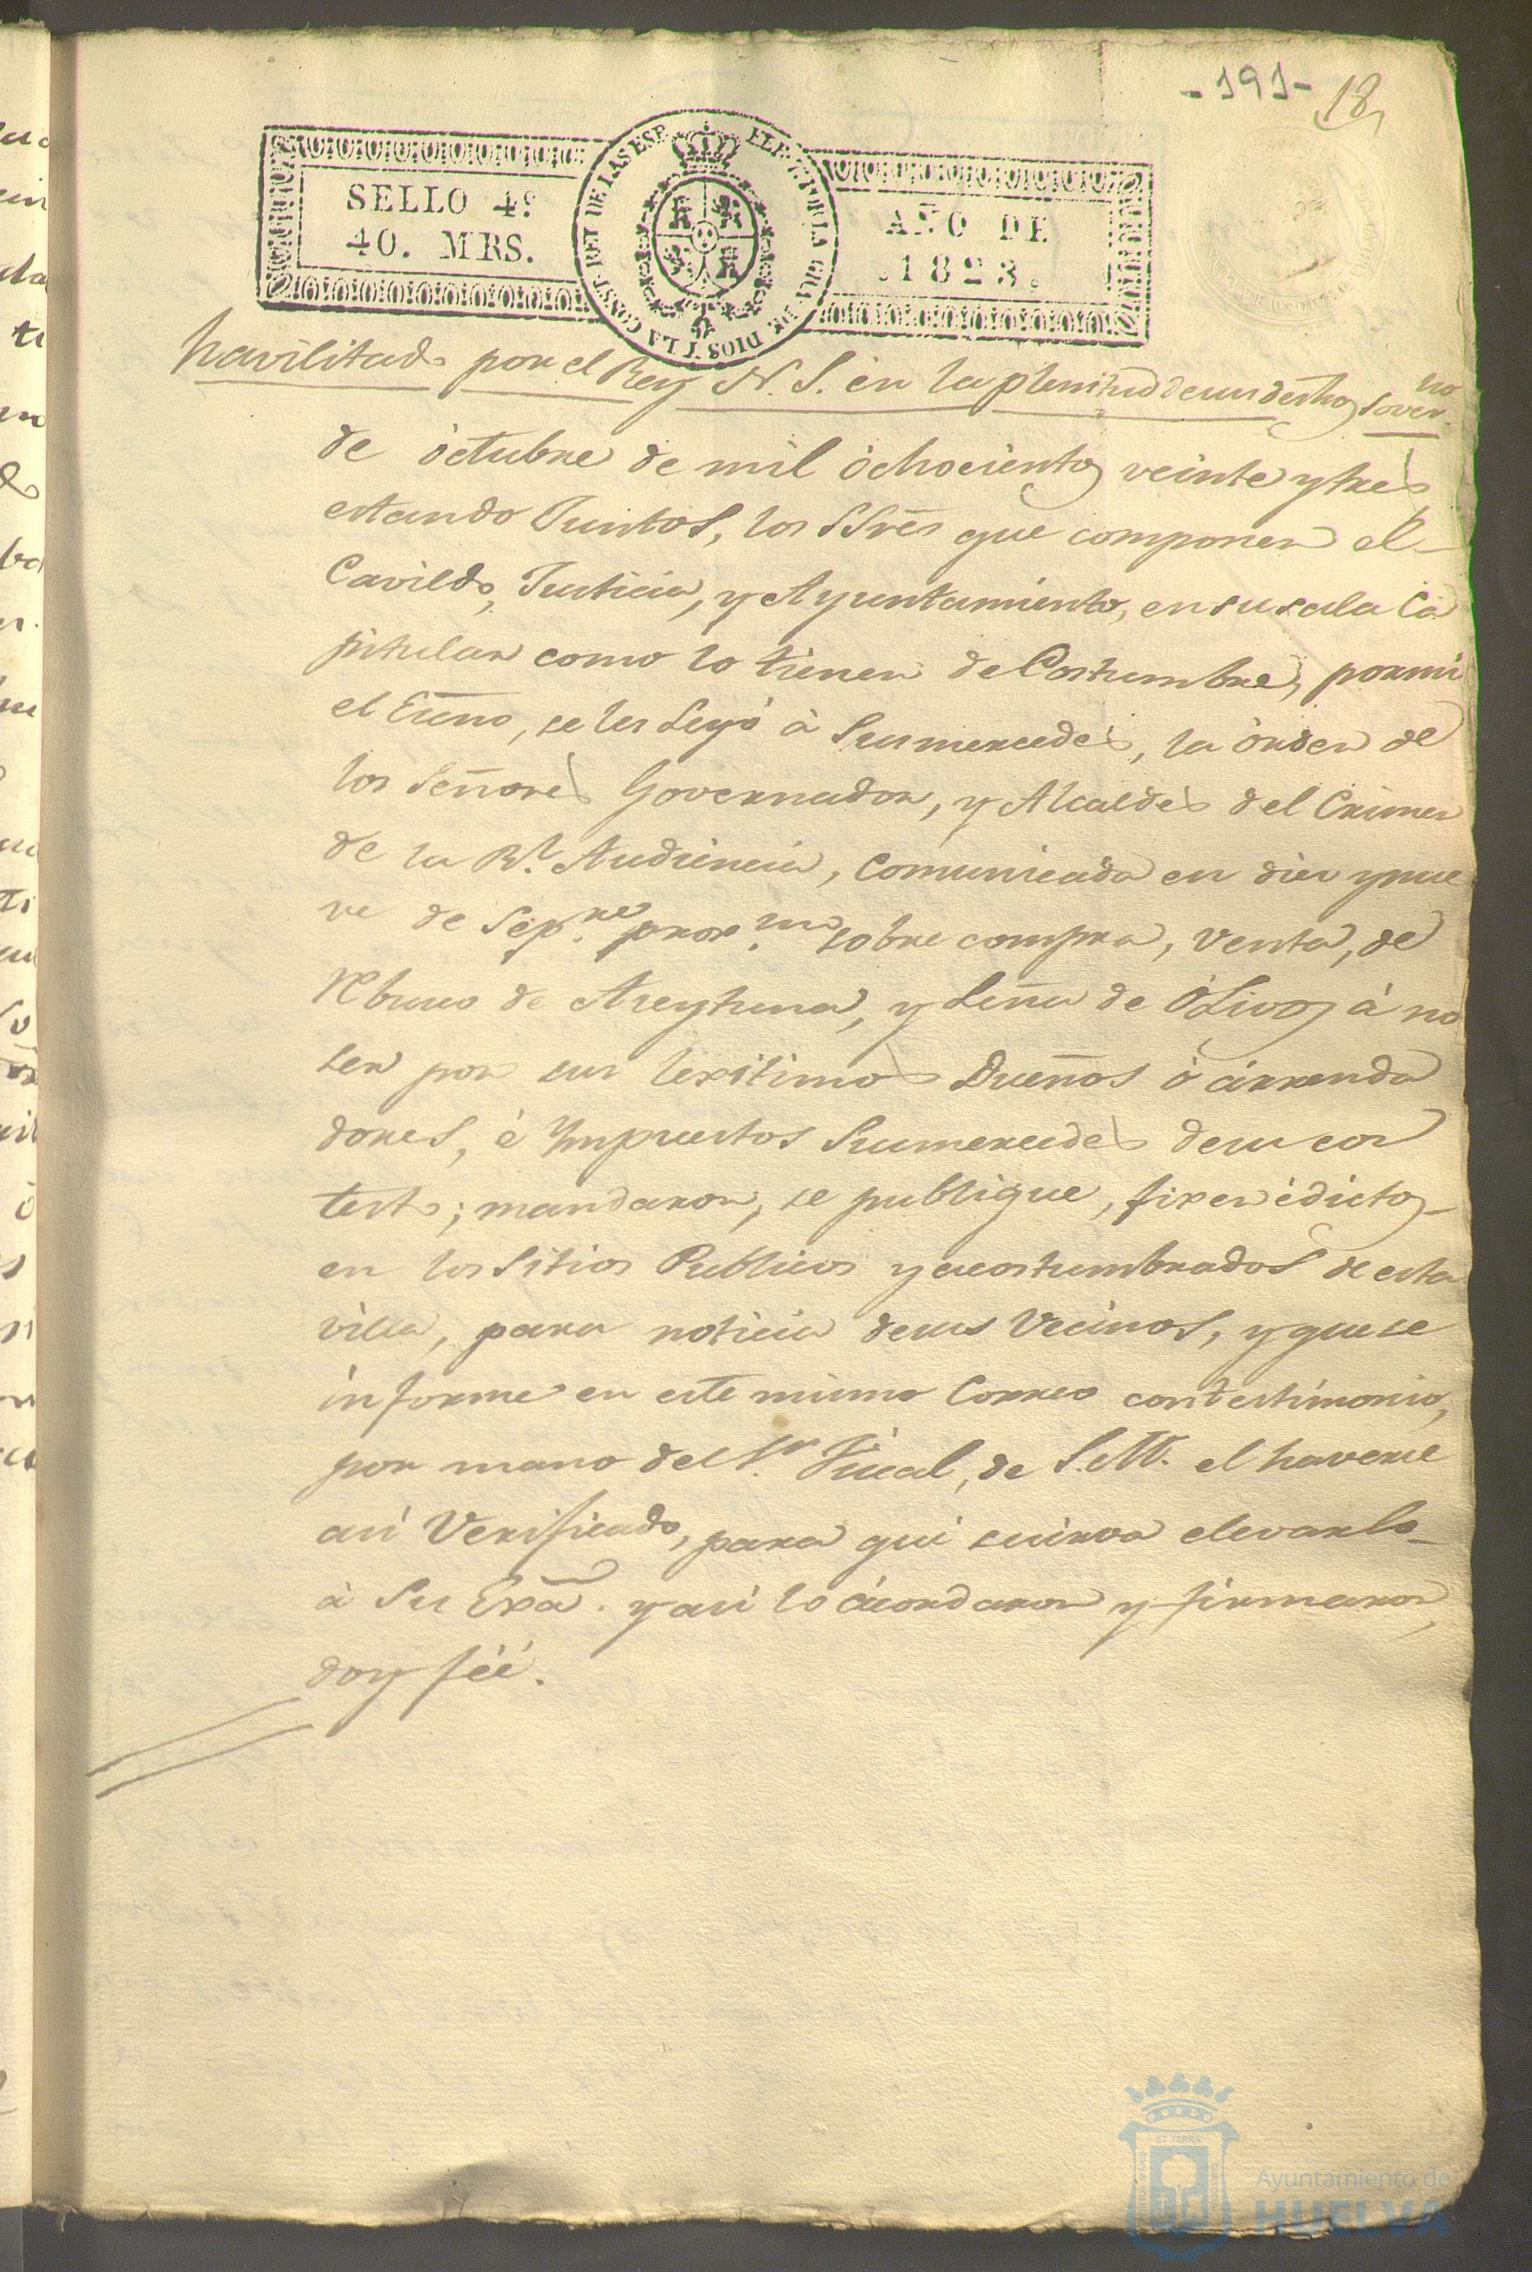 -191- 18
SELLO 4º
40. MRS.
AÑO DE
1823.
havilitado por el Rey N. S. en la plenitud de sus drhos Soverno
de òctubre de mil òchocientos veinte y tres
estando Juntos, los SSres que componen el
Cavildo, Justicia, y Ayuntamiento, en su sala Ca
pitular como lo tienen de Costumbre, por mi
el Essno, se les Leyó à Sus mercedes, la òrden de
los Señores Governador, y Alcaldes del Crimen
de la Rl. Audiencia, comunicada en diez y nue
ve de Sepre. proxmo. sobre compra, venta, de
de Aceytuna, y Leña de Olivos à no
ser por sus lexitimos Dueños ò arrenda
dores, è Ympuestos Sus mercedes de su con
testo; mandaron, se publique, fixen èdictos
en los Sitios Publicos y acostumbrados de esta
villa, para noticia de sus Vecinos, y que se
informe en este mismo Correo con testimonio,
por mano del Sr. Fiscal, de S. M. el haverse
asi Verificado, para qui se sirva elevarlo
à Su Exa. y asi lo àcordaron y firmaron,
doy feé.
Ayuntamiento de
HUELVA